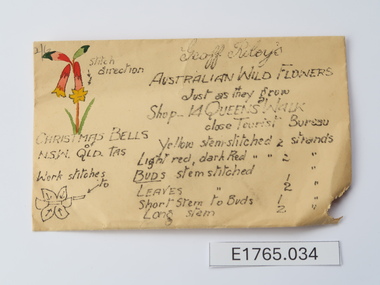 2/6
Stitch
direction
Geoff Riley's
AUSTRALIAN WILD FLOWERS
Just as they grow
Shop.. 14 QUEENS WALK
close Tourist Bureau
CHRISTMAS BELLS
of
N.S.W. QLD. TAS
Work stitches
to
Yellow stem stitched 2 strands
Light red, dark Red " " 2 "
BUDS stem stitched 1 "
LEAVES " 2 "
Short Stem to Buds 1 "
Long stem 2 "
E1765.034